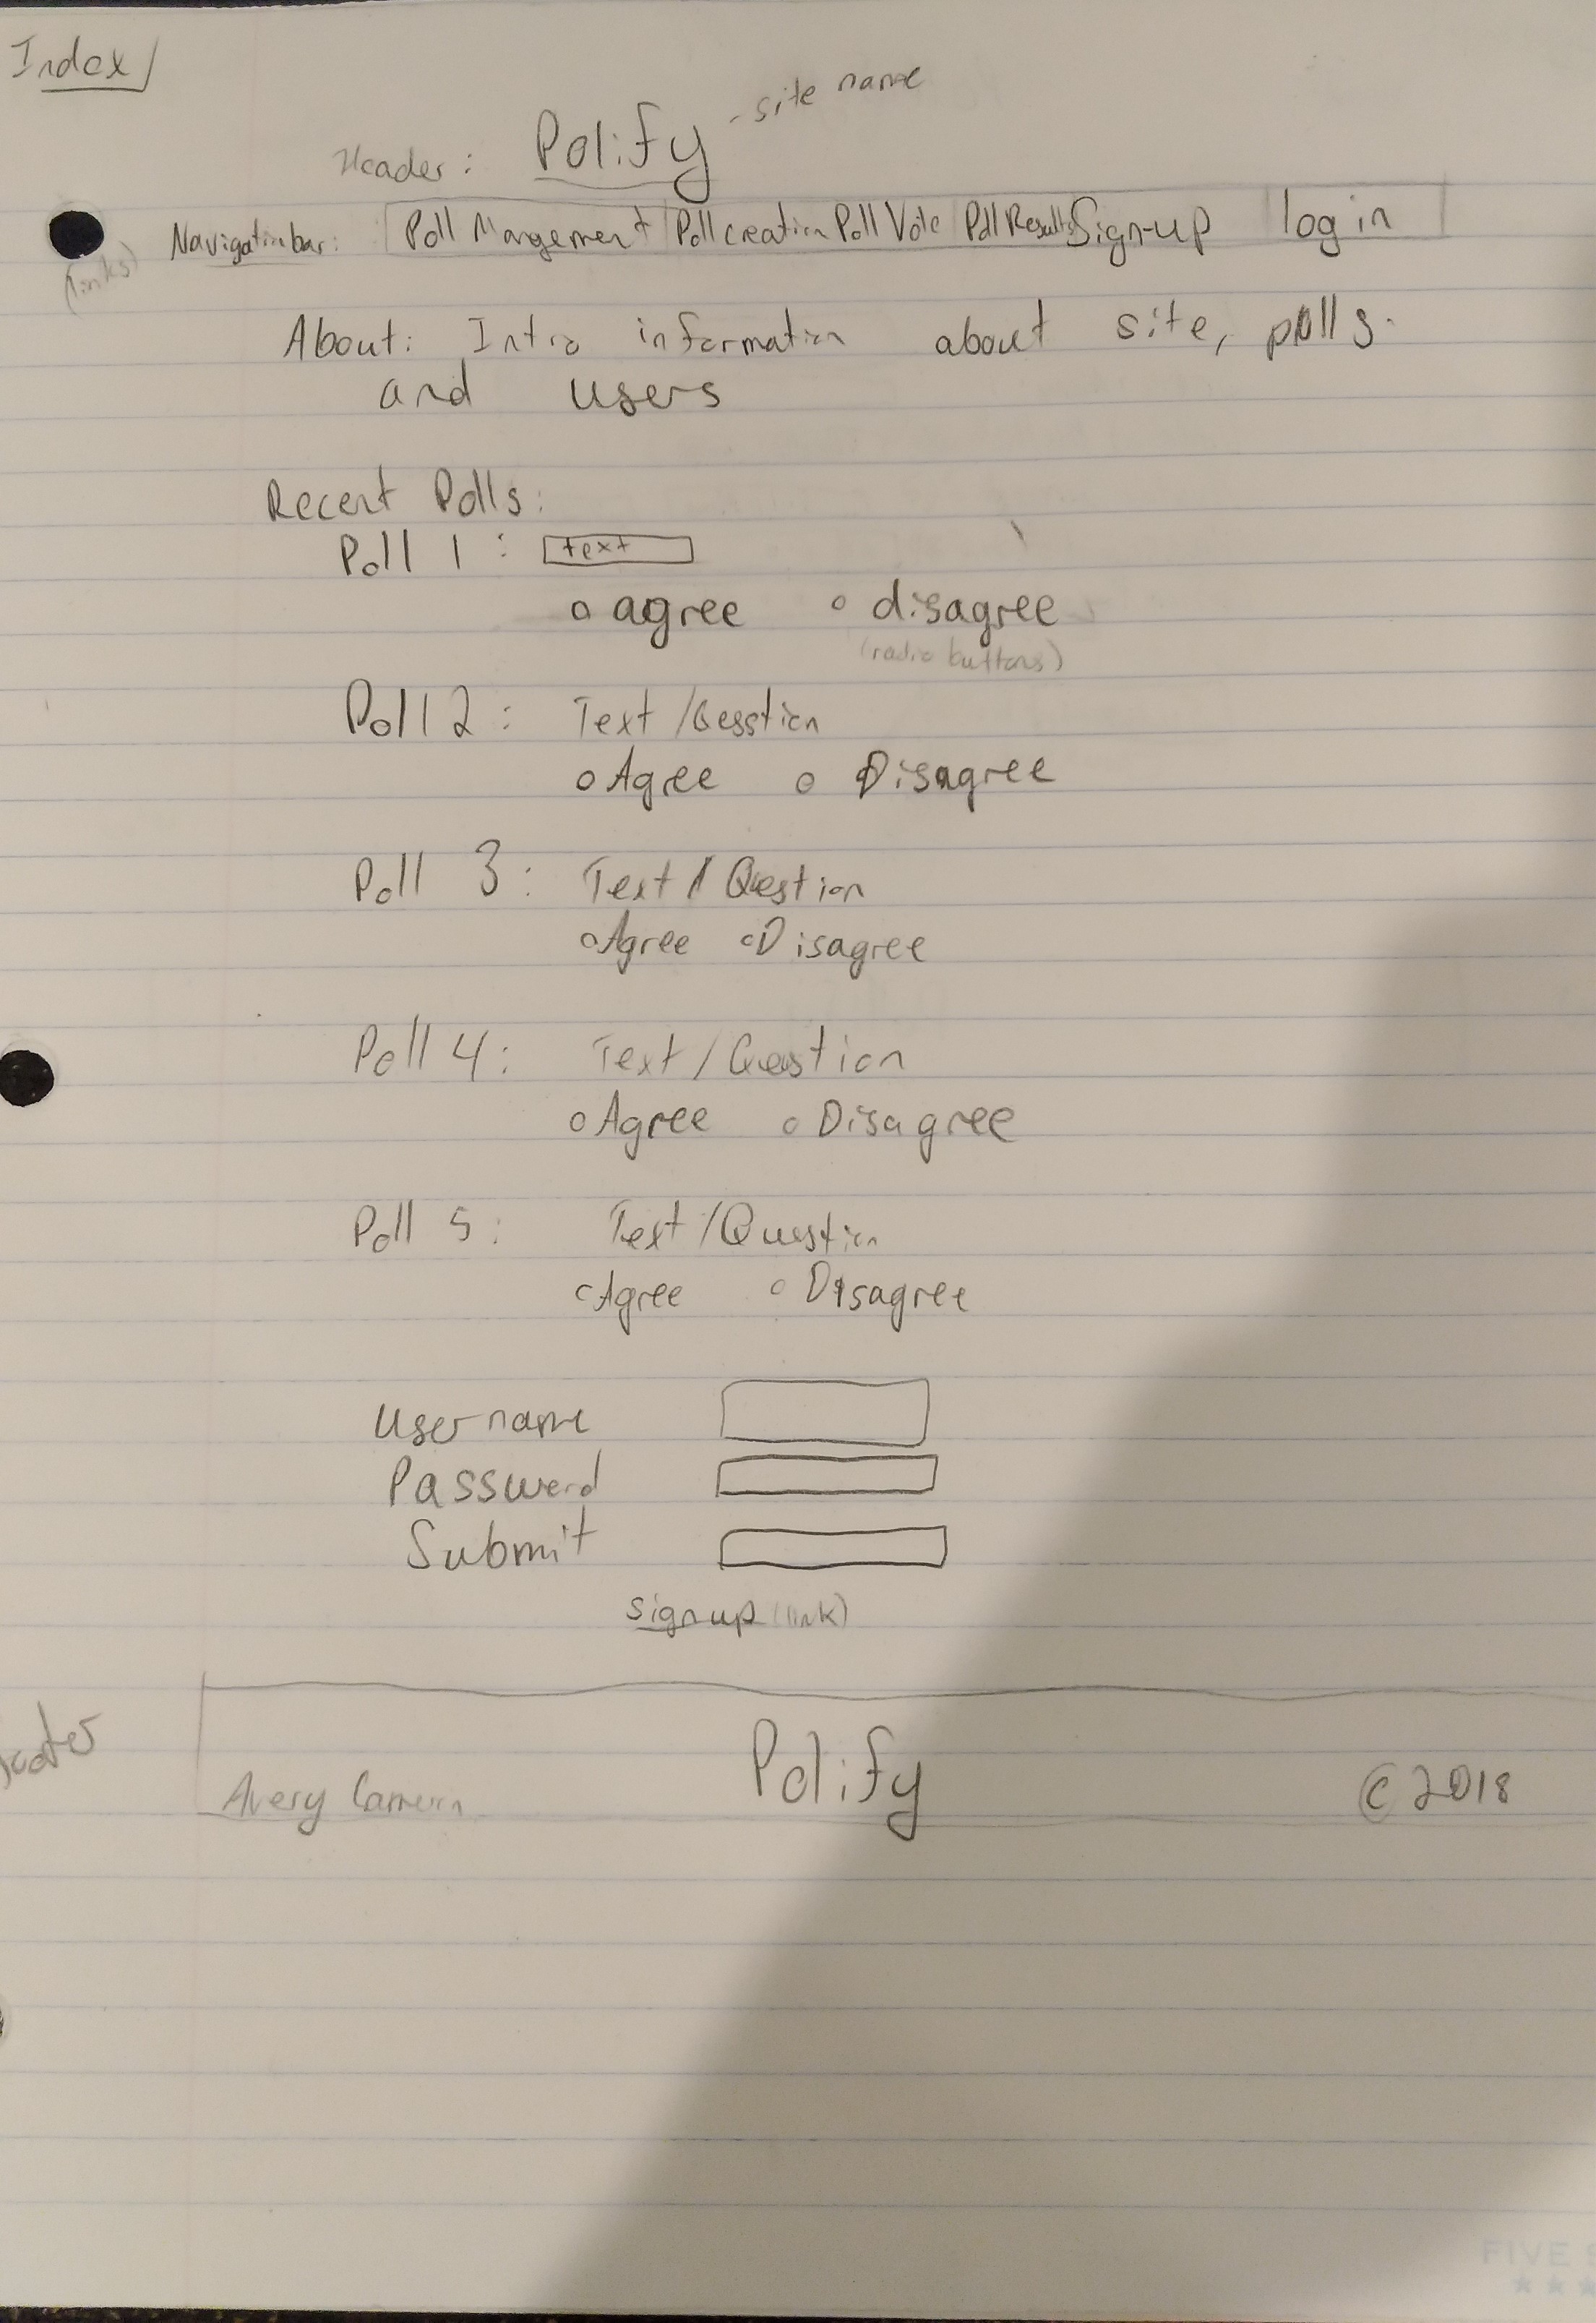 Index
- site name
Header: Polify
Navigation bar: Poll Mangement Poll creation Poll Vote Poll Results Sign-up log in
(links)
About: Intro information about site, polls.
and users
Recent Polls:
Poll 1 : text
o agree o disagree
(radio buttons)
Poll 2 : Text / Qesstion
o Agree o Disagree
Poll 3 : Text / Question
o Agree o Disagree
Poll 4 : Text / Question
o Agree o Disagree
Poll 5 : Text / Question
o Agree o Disagree
Username
Password
Submit
signup (link)
Footer
Polify
Avery © 2018
FIVE S